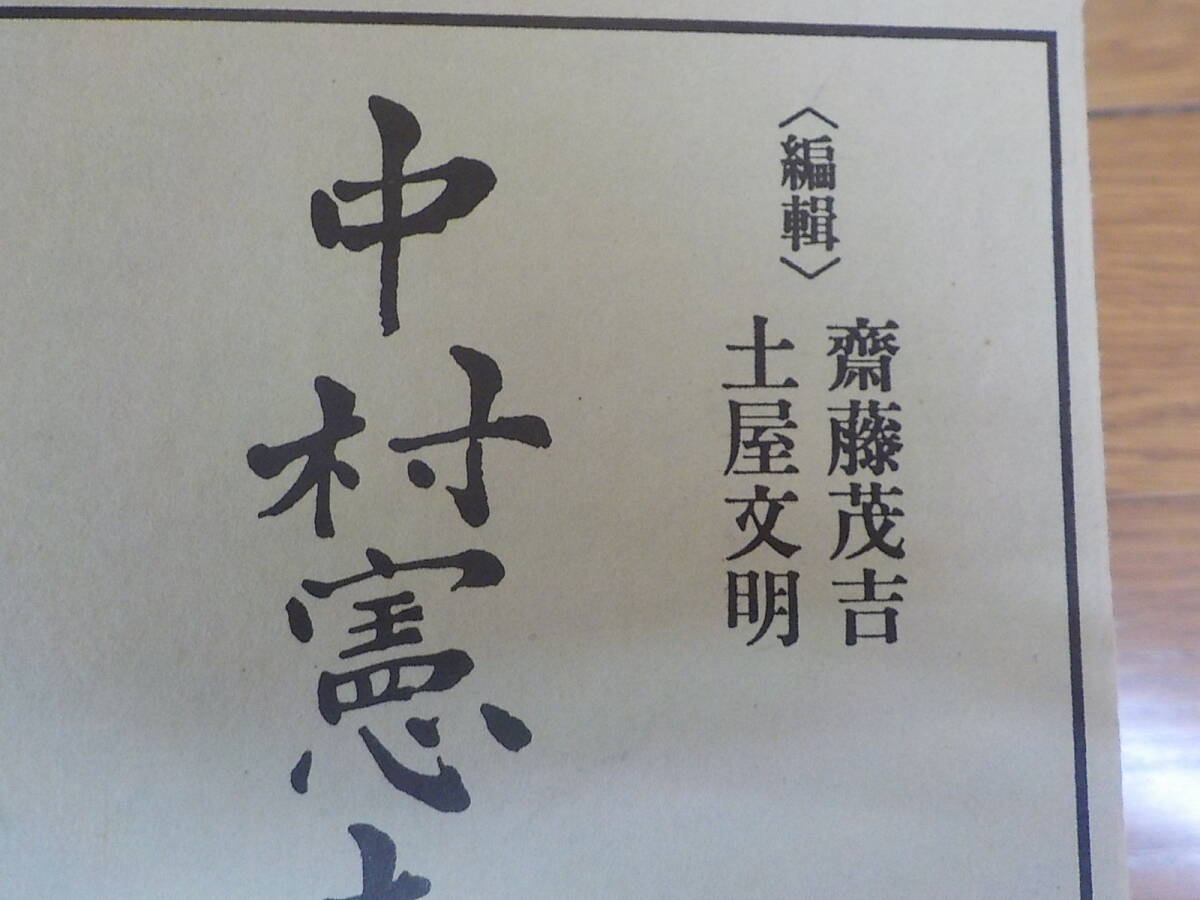 〈編輯〉
齋藤茂吉
土屋文明
中村憲